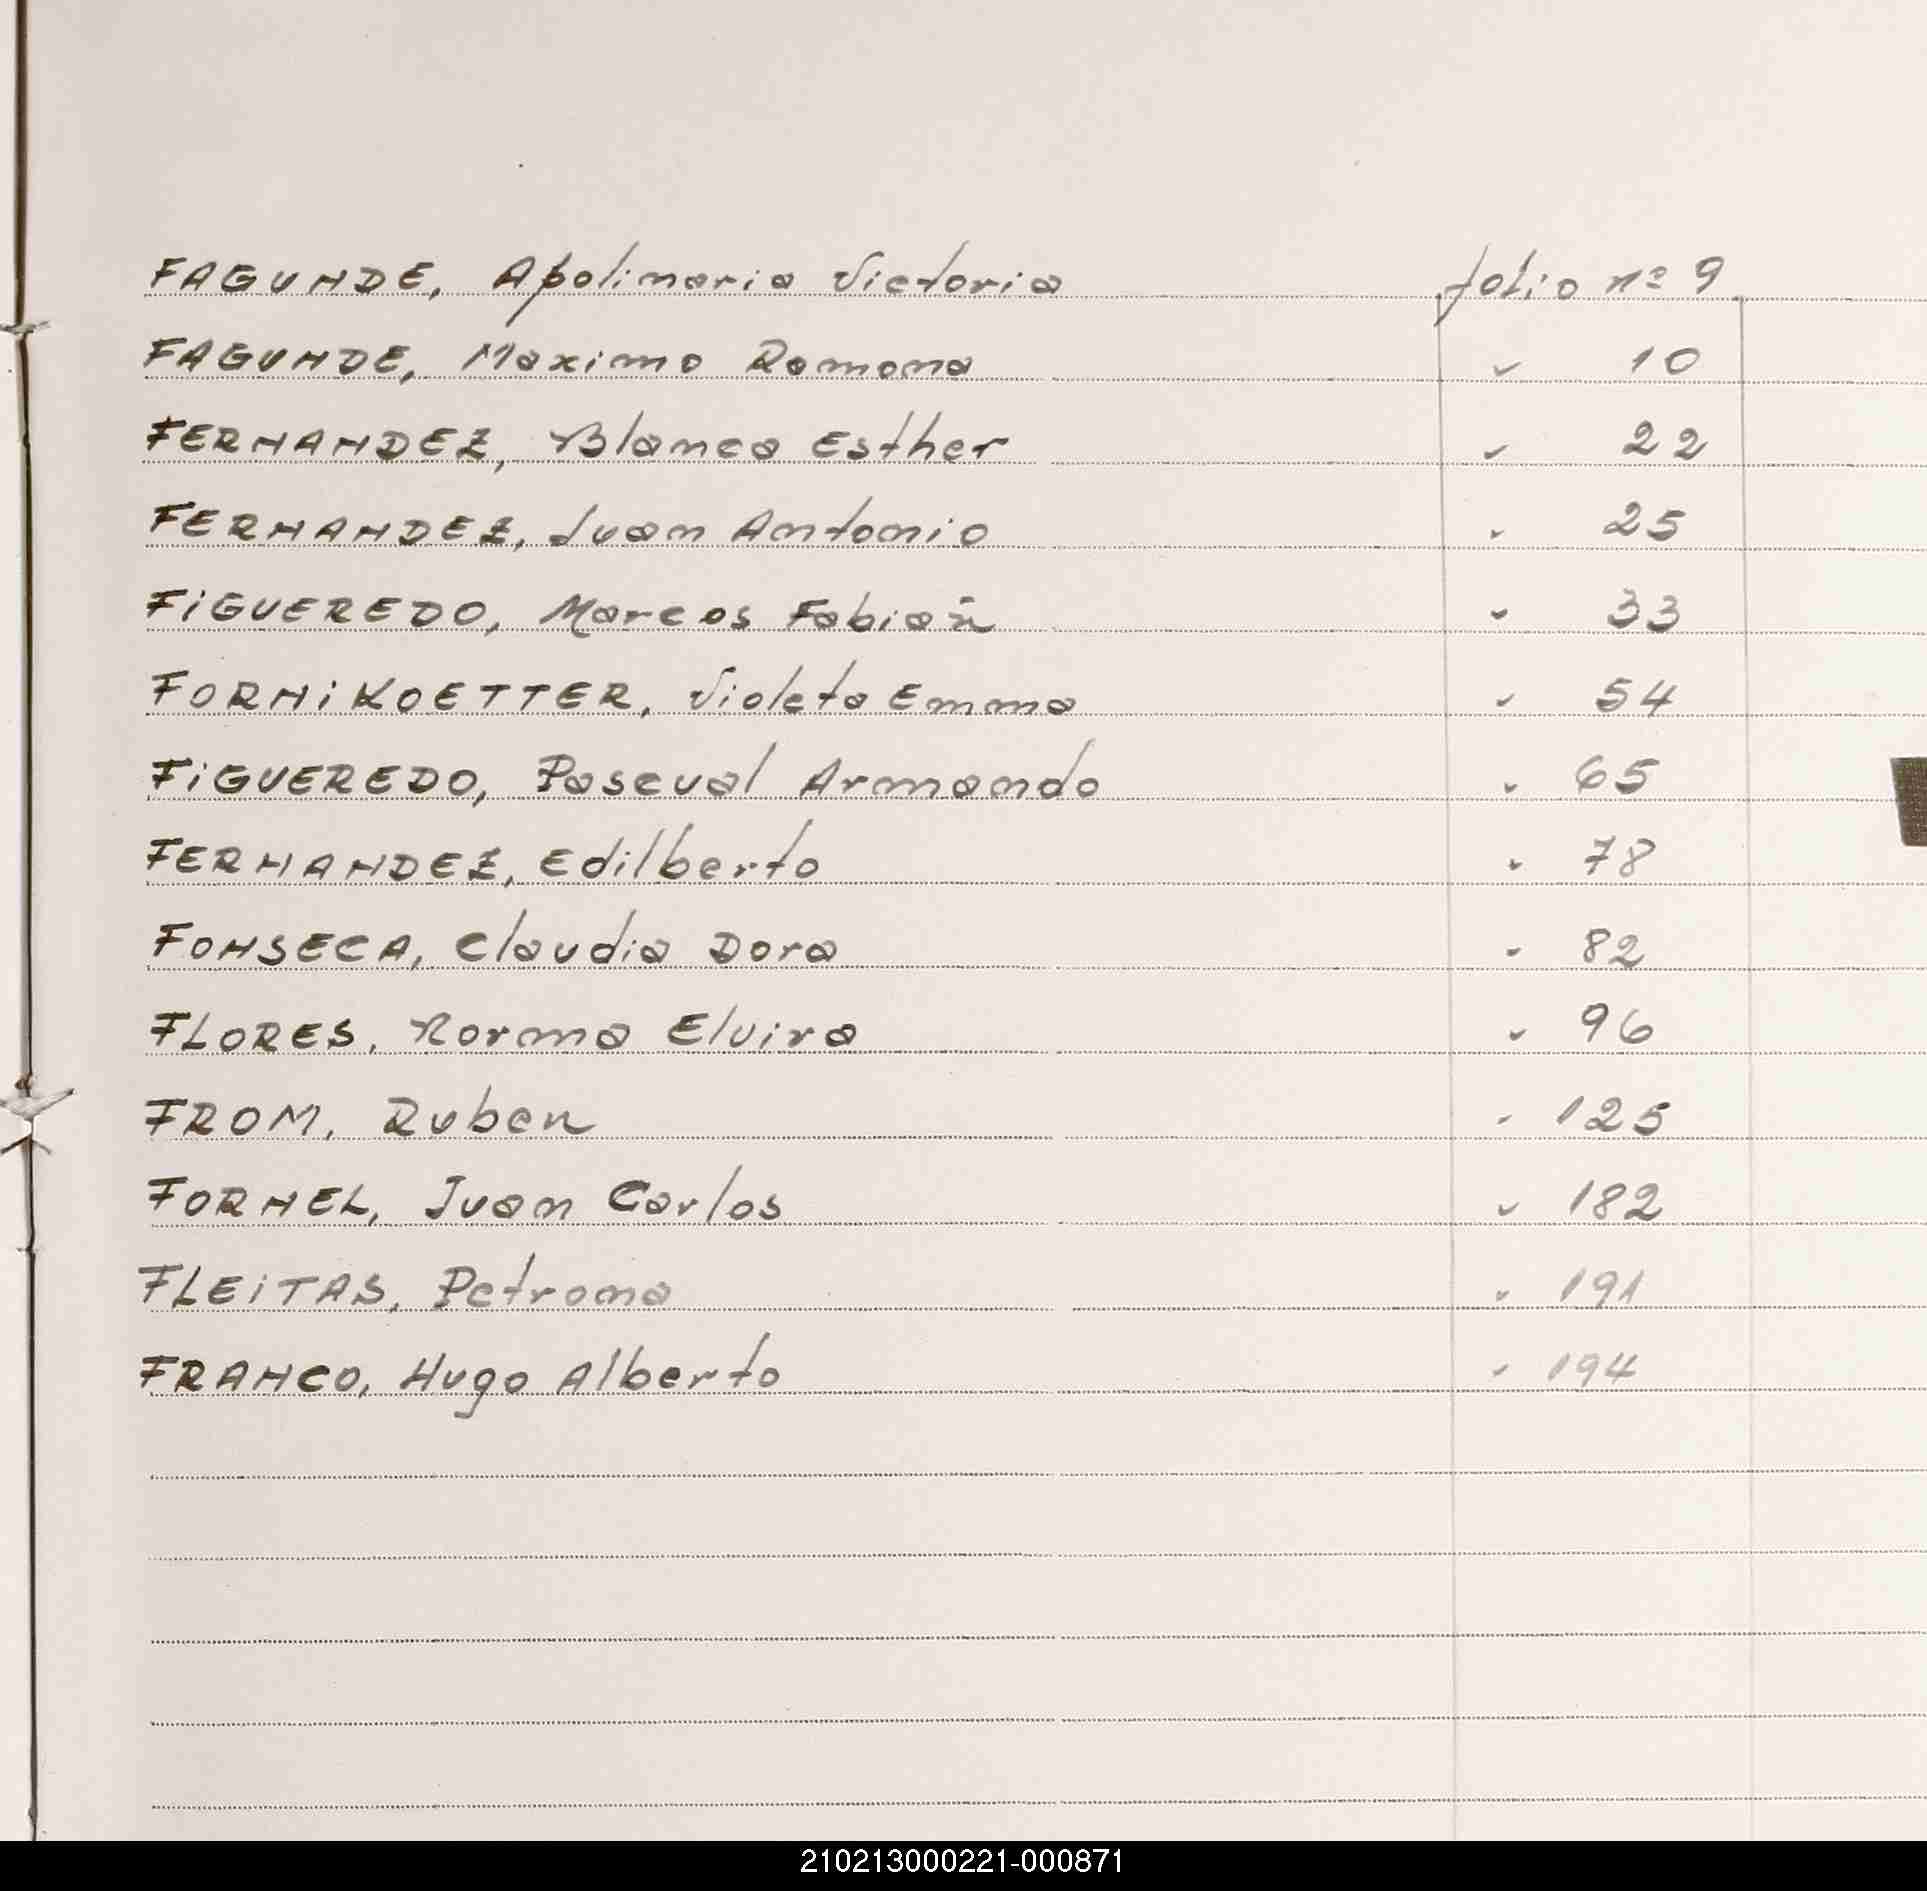 FAGUNDE, Apolinaria Victoria folio nº 9
FAGUNDE, Maximo Romana " 10
FERNANDEZ, Blanca Esther " 22
FERNANDEZ, Juan Antonio " 25
FiGUEREDO, Marcos Fabián " 33
FORNiKOETTER, Violeta Emma " 54
FiGUEREDO, Pascual Armando " 65
FERNANDEZ, Edilberto " 78
FONSECA, Claudia Dora " 82
FLORES, Norma Elvira " 96
FROM, Ruben " 125
FORNEL, Juan Carlos " 182
FLEiTAS, Petrona " 191
FRANCO, Hugo Alberto " 194
210213000221-000871